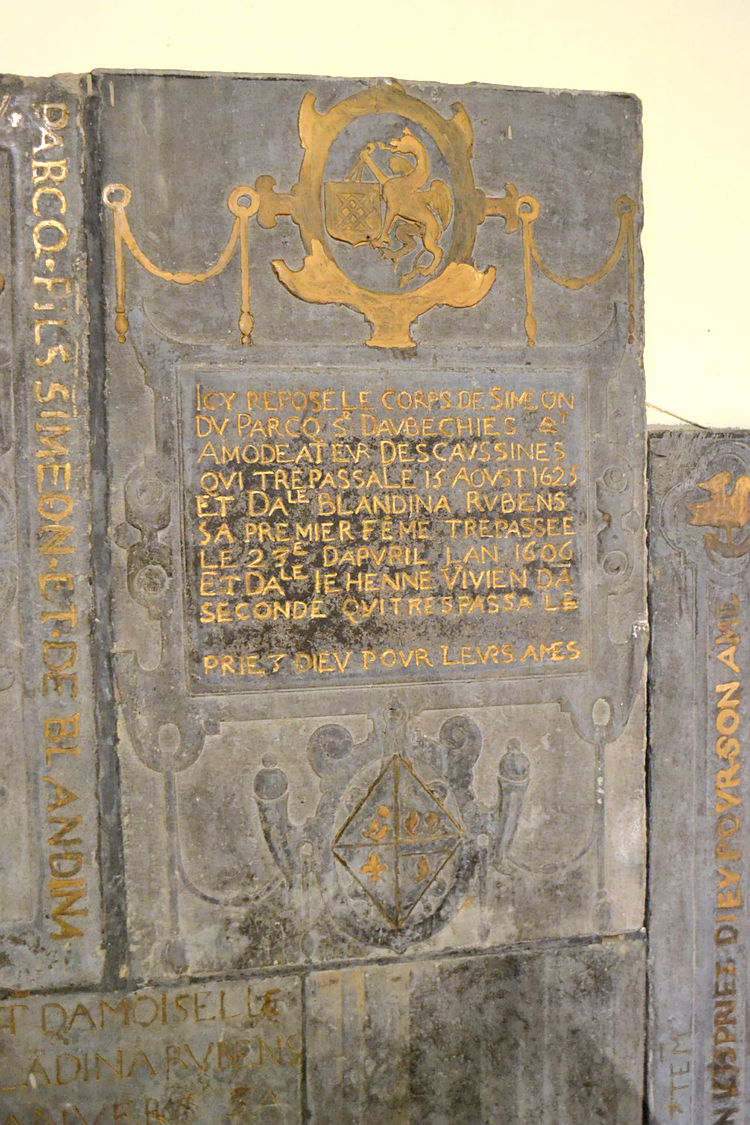 PARCQ · FILS SIMEON · ET · DE BLANDIN
ICY REPOSE LE CORPS DE SIMEON
DV PARCQ Sʳ DAVBECHIES & ᵀ
AMODEATEVR DESCAVSSINES
QVI TREPASSA LE 15 AOVST 1625
ET DAᴸᴱ BLANDINA RVBENS
SA PREMIER FEME TREPASSEE
LE 23ᴱ DAPVRIL LAN 1606
ET DAᴸᴱ IEHENNE VIVIEN DA
SECONDE QVI TRESPASSA LE
PRIEZ DIEV POVR LEVRS AMES
ET DAMOISELLE
LADINA RVBENS
PRIEZ DIEV POVR SON AME